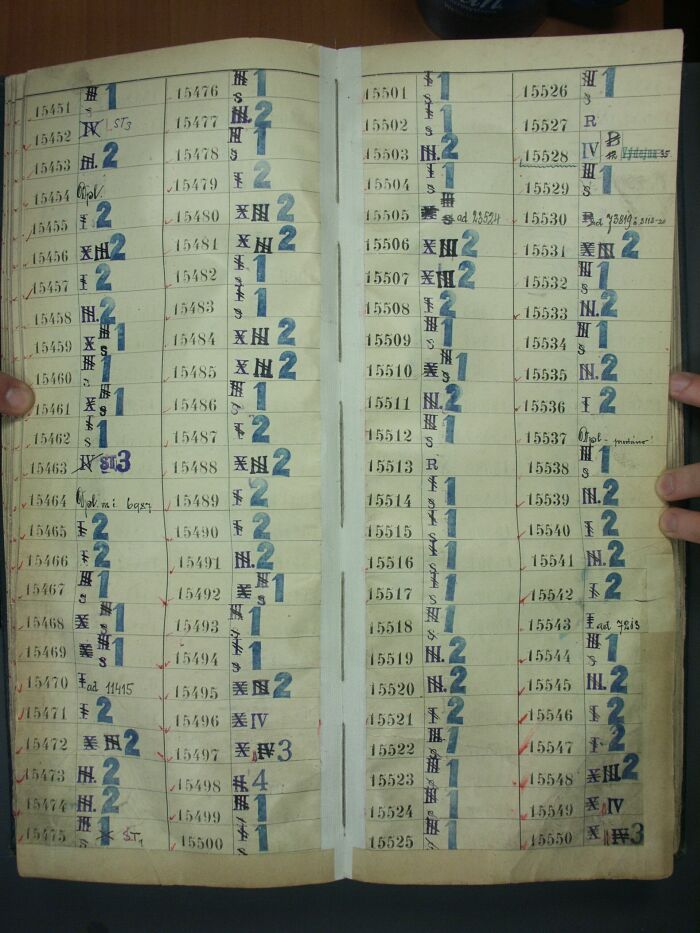 15451 III s 1
15452 IV ST3
15453 III. 2
15454
15455 I 2
15456 X III 2
15457 I 2
15458 III. 2
15459 X III s 1
15460 III s 1
15461 X III s 1
15462 I s 1
15463 IV ST3
15464 6987
15465 I 2
15466 I 2
15467 III s 1
15468 X III s 1
15469 X III s 1
15470 I ad 11415
15471 I 2
15472 X III 2
15473 III. 2
15474 III. 2
15475 III s 1 ST1
15476 III s 1
15477 III. 2
15478 III s 1
15479 I 2
15480 X III 2
15481 X III 2
15482 I s 1
15483 I s 1
15484 X III 2
15485 X III 2
15486 III s 1
15487 I 2
15488 X III 2
15489 I 2
15490 I 2
15491 III. 2
15492 X III s 1
15493 III s 1
15494 I s 1
15495 X III 2
15496 X IV
15497 X IV 3
15498 II. 4
15499 III s 1
15500 I s 1
15501 I s 1
15502 I s 1
15503 III. 2
15504 I s 1
15505 X III s ad 23524
15506 X III 2
15507 X III 2
15508 I 2
15509 III s 1
15510 X III s 1
15511 III. 2
15512 III s 1
15513 R
15514 I s 1
15515 I s 1
15516 I s 1
15517 I s 1
15518 III s 1
15519 III. 2
15520 III. 2
15521 I 2
15522 III. s 1
15523 III s 1
15524 I s 1
15525 III s 1
15526 III s 1
15527 R
15528 IV B Výdejna 35
15529 III s 1
15530 R ad 73819
15531 X III 2
15532 III s 1
15533 III. 2
15534 III s 1
15535 III. 2
15536 I 2
15537
15538 III s 1
15539 III. 2
15540 I 2
15541 III. 2
15542 I 2
15543 I ad
15544 III s 1
15545 III. 2
15546 I 2
15547 I 2
15548 X III 2
15549 X IV
15550 X IV 3